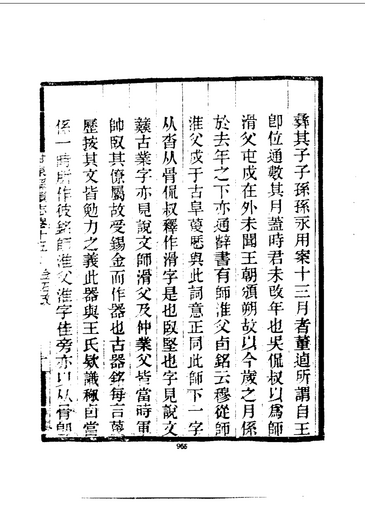 彝其子子孫孫永用案十三月者董逌所謂自王
卽位通數其月蓋時君未改年也吳侃叔以為師
淮父屯戍在外未聞王朝頒朔故以今歲之月係
於去年之下亦通辭書有師淮父卣銘云穆從師
淮父戍于古阜蔑歷與此詞意正同此師下一字
从㫺从骨侃叔釋作滑字是也臤堅也字見說文
古業字亦見說文師滑父及仲業父皆當時軍
帥臤其僚屬故受錫金而作器也古器銘每言蔑
歷按其文皆勉力之義此器與王氏欵識穪卣當
係一時所作彼銘師淮父淮字隹旁亦以从骨
966